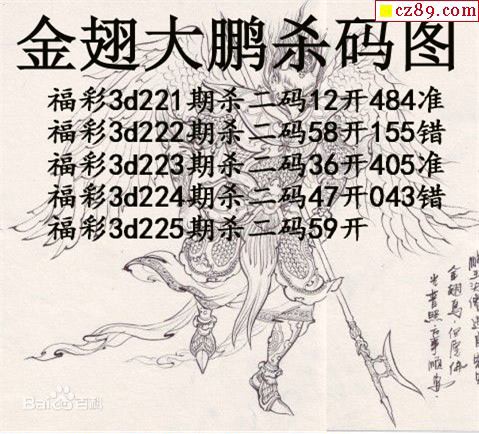 cz89.com
金翅大鹏杀码图
福彩3d221期杀二码12开484准
福彩3d222期杀二码58开155错
福彩3d223期杀二码36开405准
福彩3d224期杀二码47开043错
福彩3d225期杀二码59开
Baidu百科